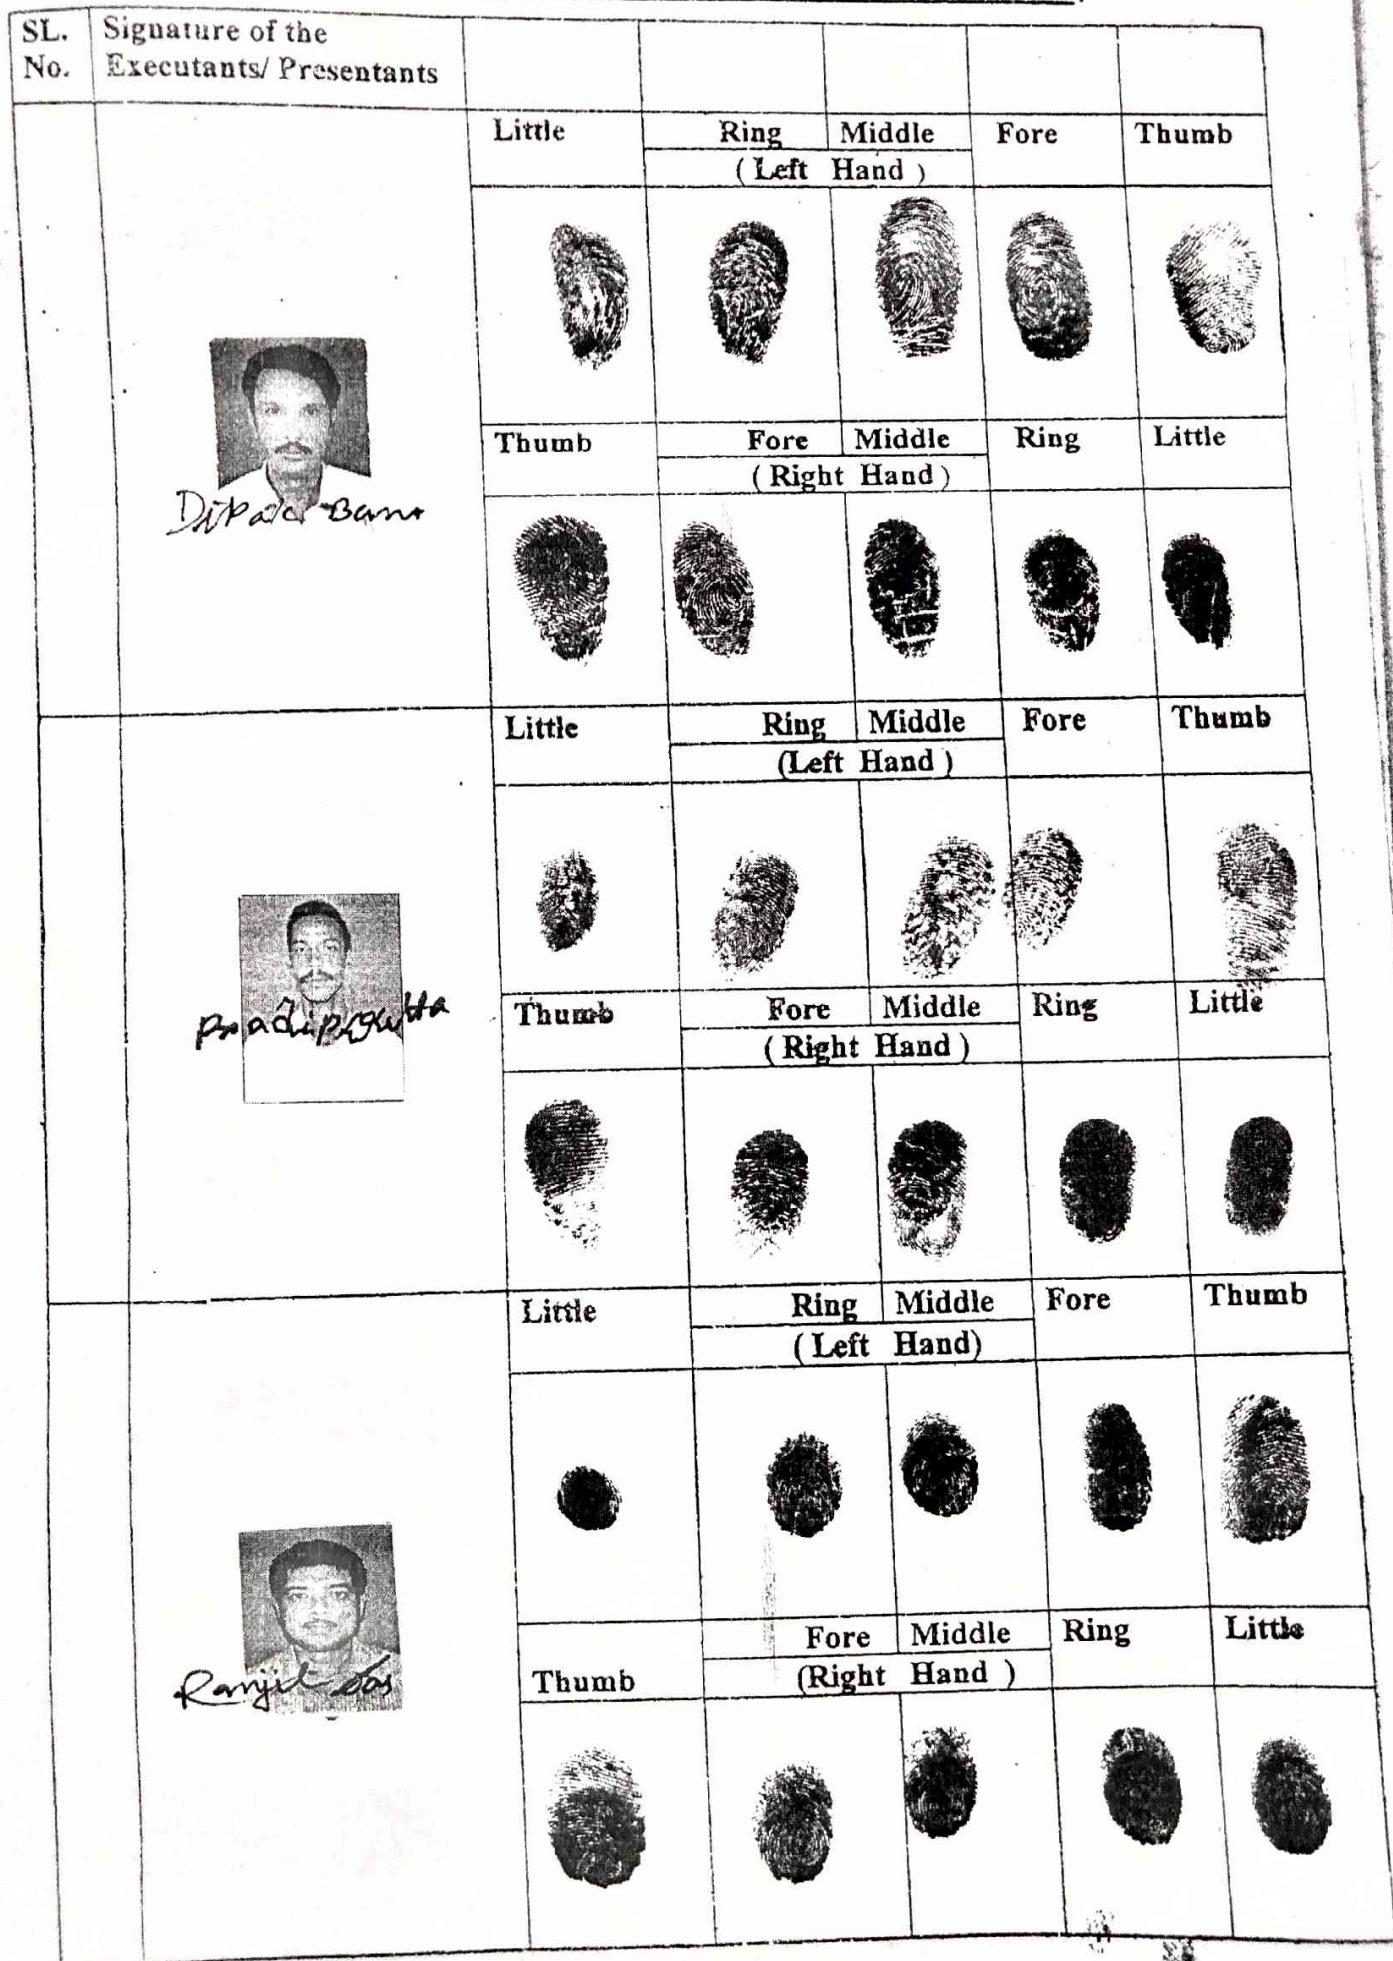 SL. No.
Signature of the Executants/ Presentants
Little Ring Middle Fore Thumb
( Left Hand )
Thumb Fore Middle Ring Little
( Right Hand )
Little Ring Middle Fore Thumb
(Left Hand )
Pradip gutta
Thumb Fore Middle Ring Little
( Right Hand )
Little Ring Middle Fore Thumb
( Left Hand)
Ranjit Das
Thumb Fore Middle Ring Little
(Right Hand )